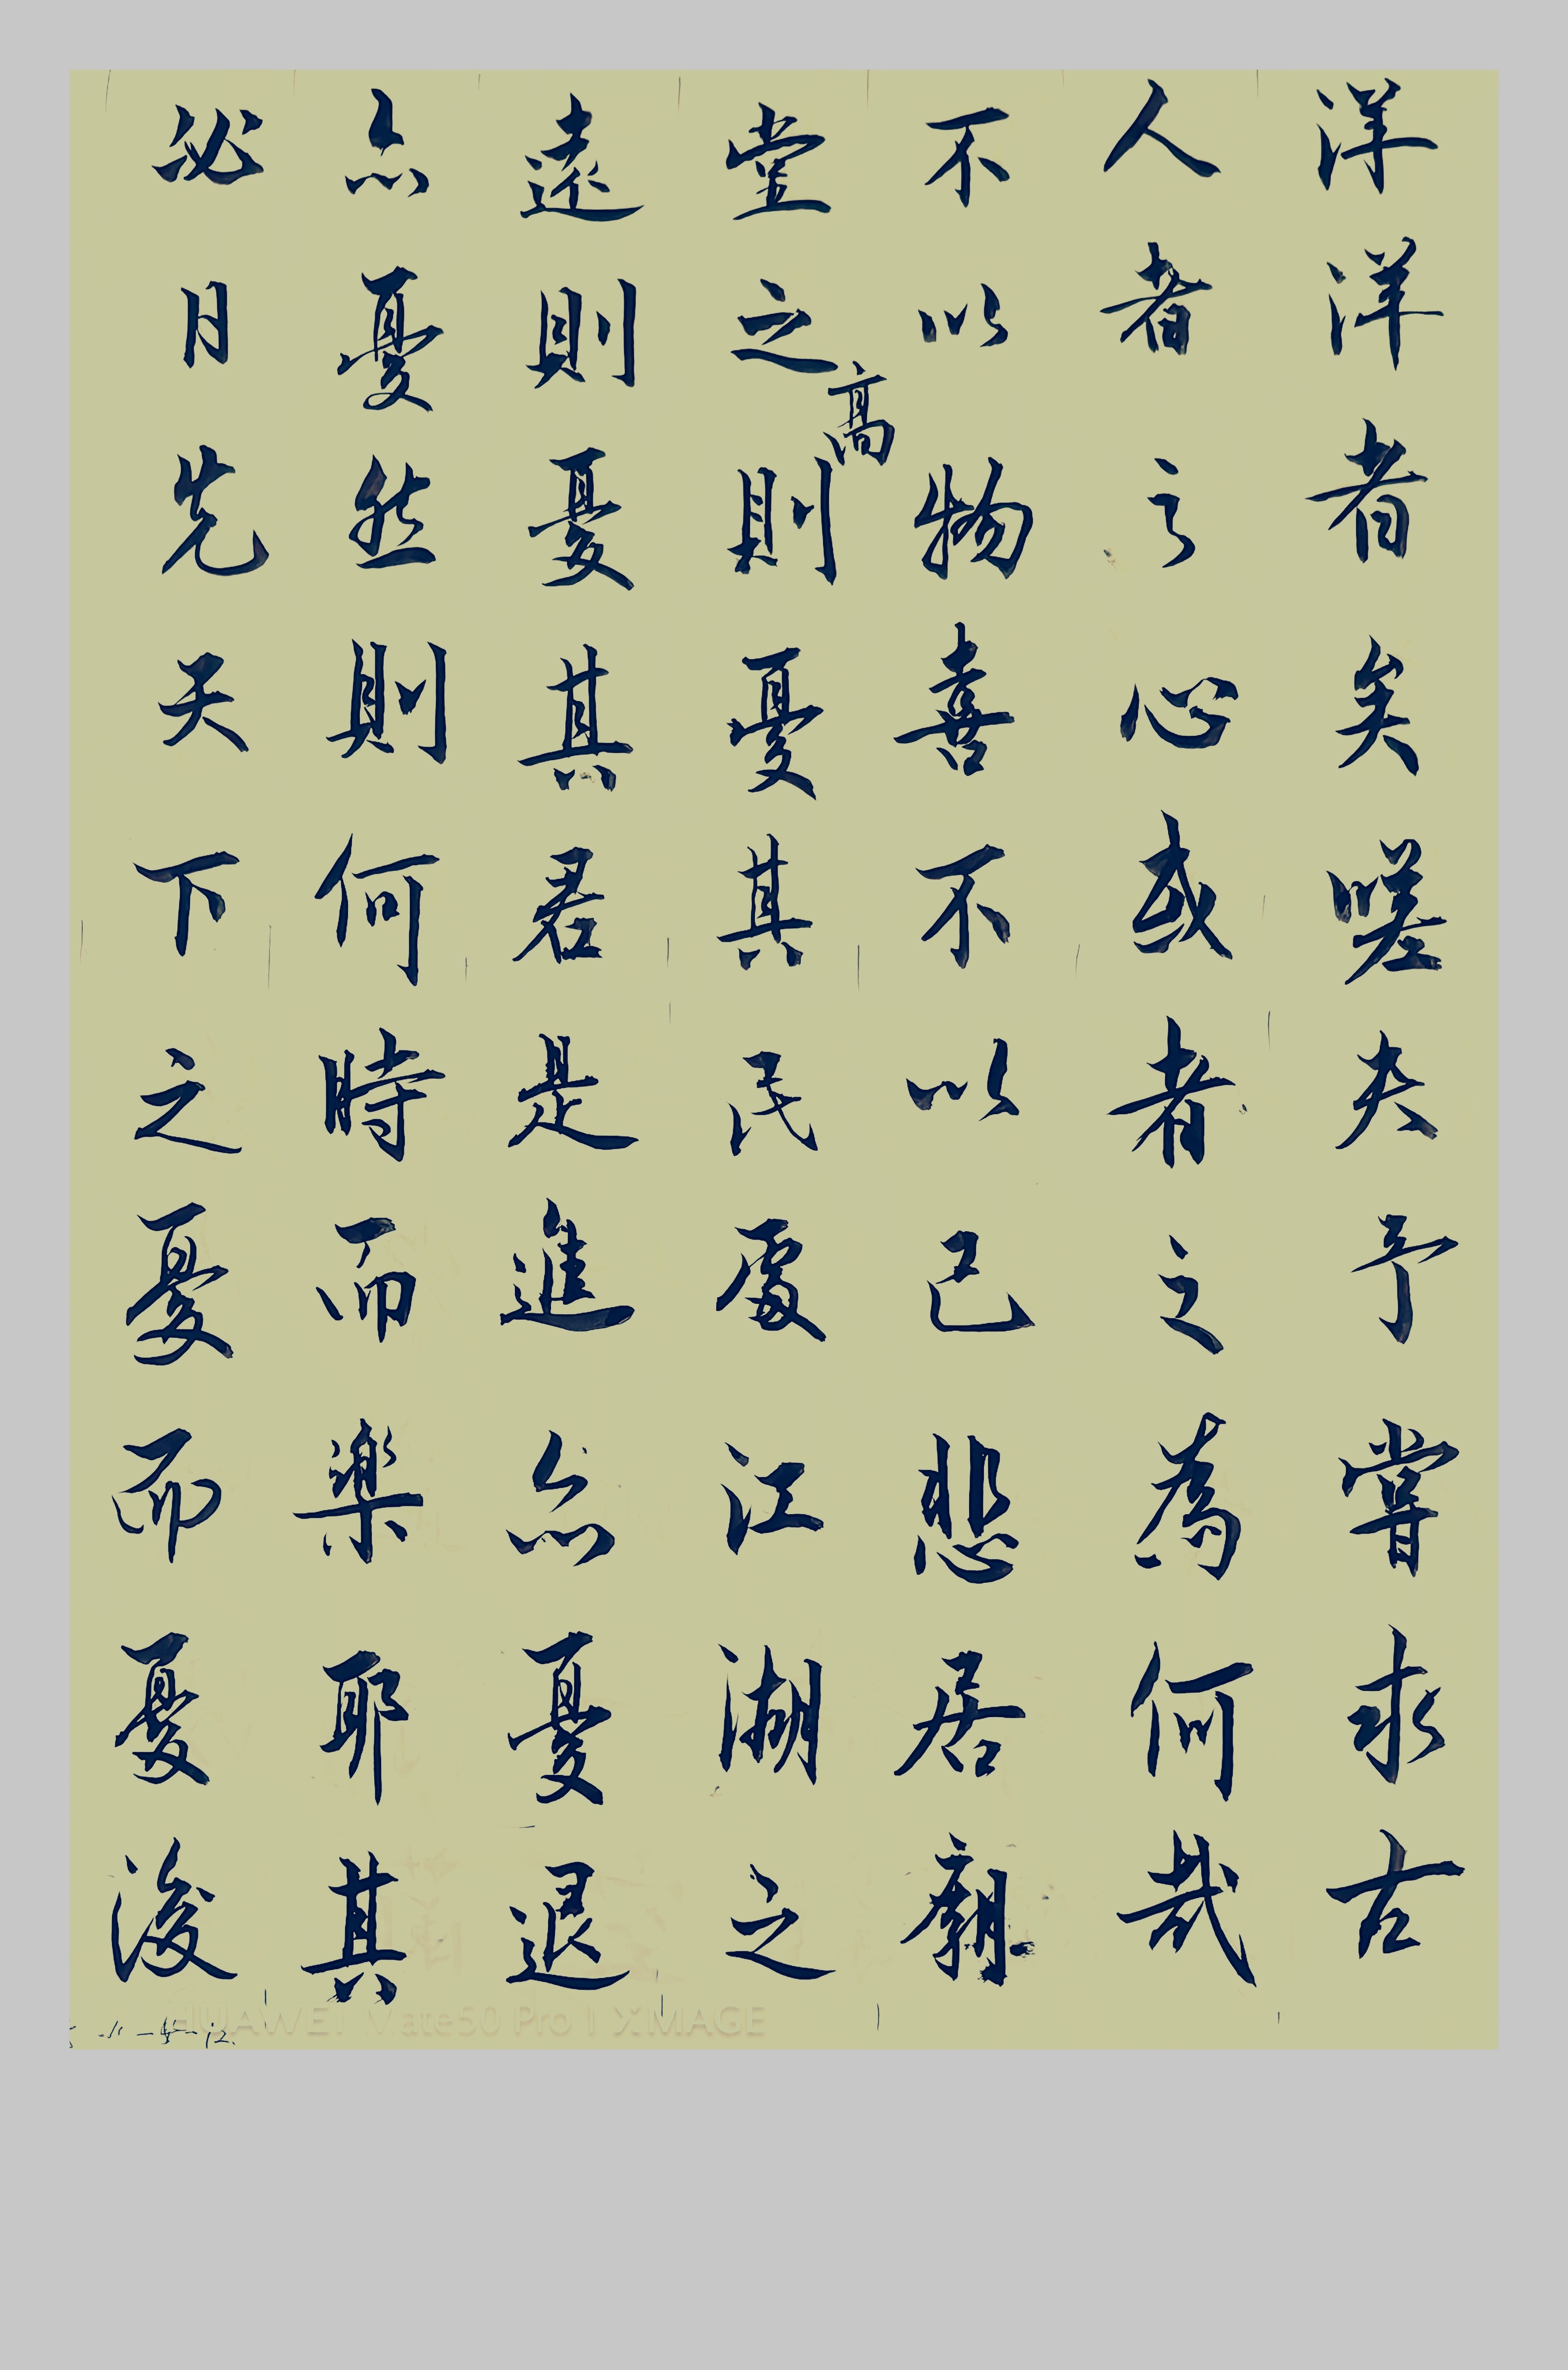 洋洋者矣嗟夫予嘗求古
人者之心或者之為何哉
不以物喜不以己悲居廟
堂之高則憂其民處江湖之
遠則憂其君是進亦憂退
亦憂然則何時而樂耶其
必曰先天下之憂而憂後
HUAWEI Mate50 Pro | XMAGE